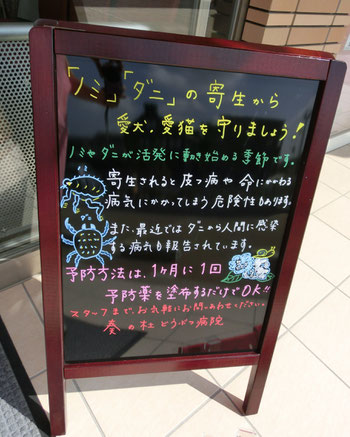 「ノミ」「ダニ」の寄生から
愛犬、愛猫を守りましょう!
ノミやダニが活発に動き始める季節です。
寄生されると皮フ病や命にかかわる
病気にかかってしまう危険性もあります。
また、最近ではダニから人間に感染
する病気も報告されています。
予防方法は、1ヶ月に1回
予防薬を塗布するだけでOK!!
スタッフまで、お気軽にお問いあわせください。
愛の杜どうぶつ病院